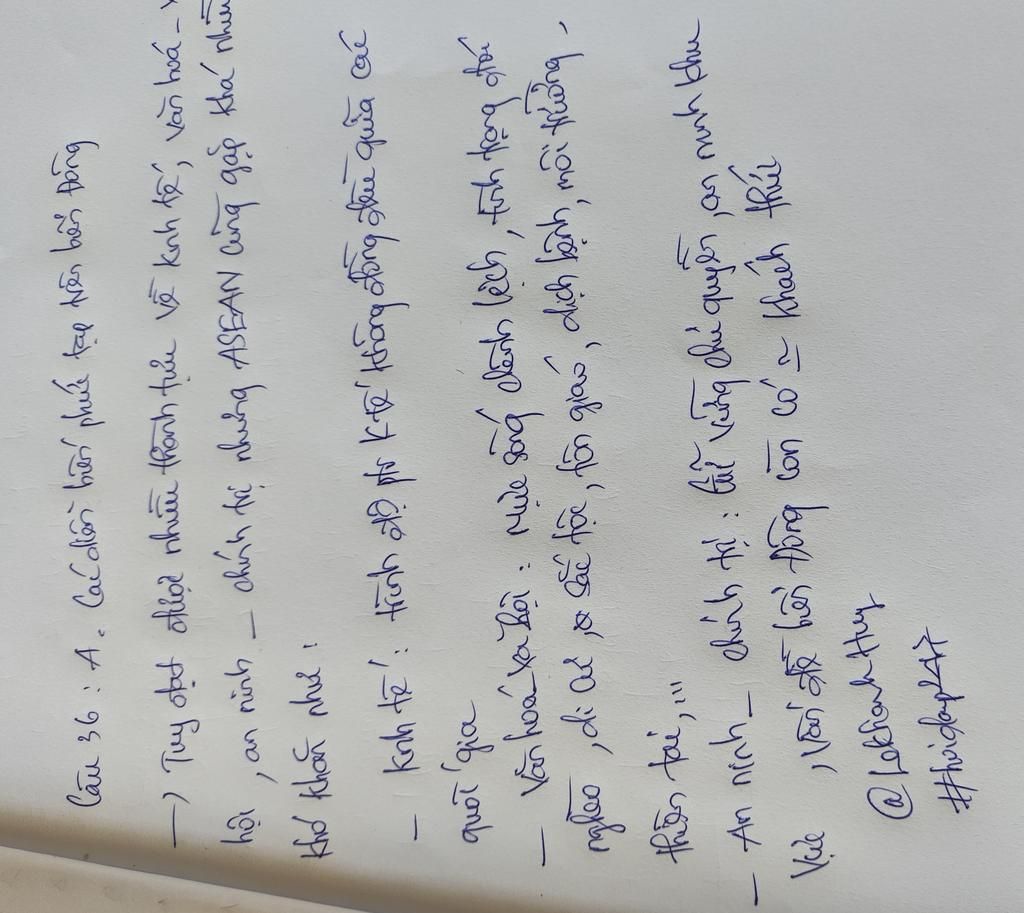 Câu 36 : A. Các diễn biến phức tạp trên biển Đông
→ Tuy đạt được nhiều thành tựu về kinh tế, văn hoá -
hội, an ninh - chính trị nhưng ASEAN cũng gặp khá nhiều
khó khăn như :
- kinh tế : trình độ ptr ktế không đồng đều giữa các
quốc gia
- Văn hoá xã hội : mức sống chênh lệch, tình trạng đói
nghèo, di cư, sắc tộc, tôn giáo, dịch bệnh, môi trường,
thiên tai,...
- An ninh - chính trị : giữ vững chủ quyền, an ninh khu
vực, vấn đề biển Đông còn có = khách thức
@LekhanhHuy
#hoidap247